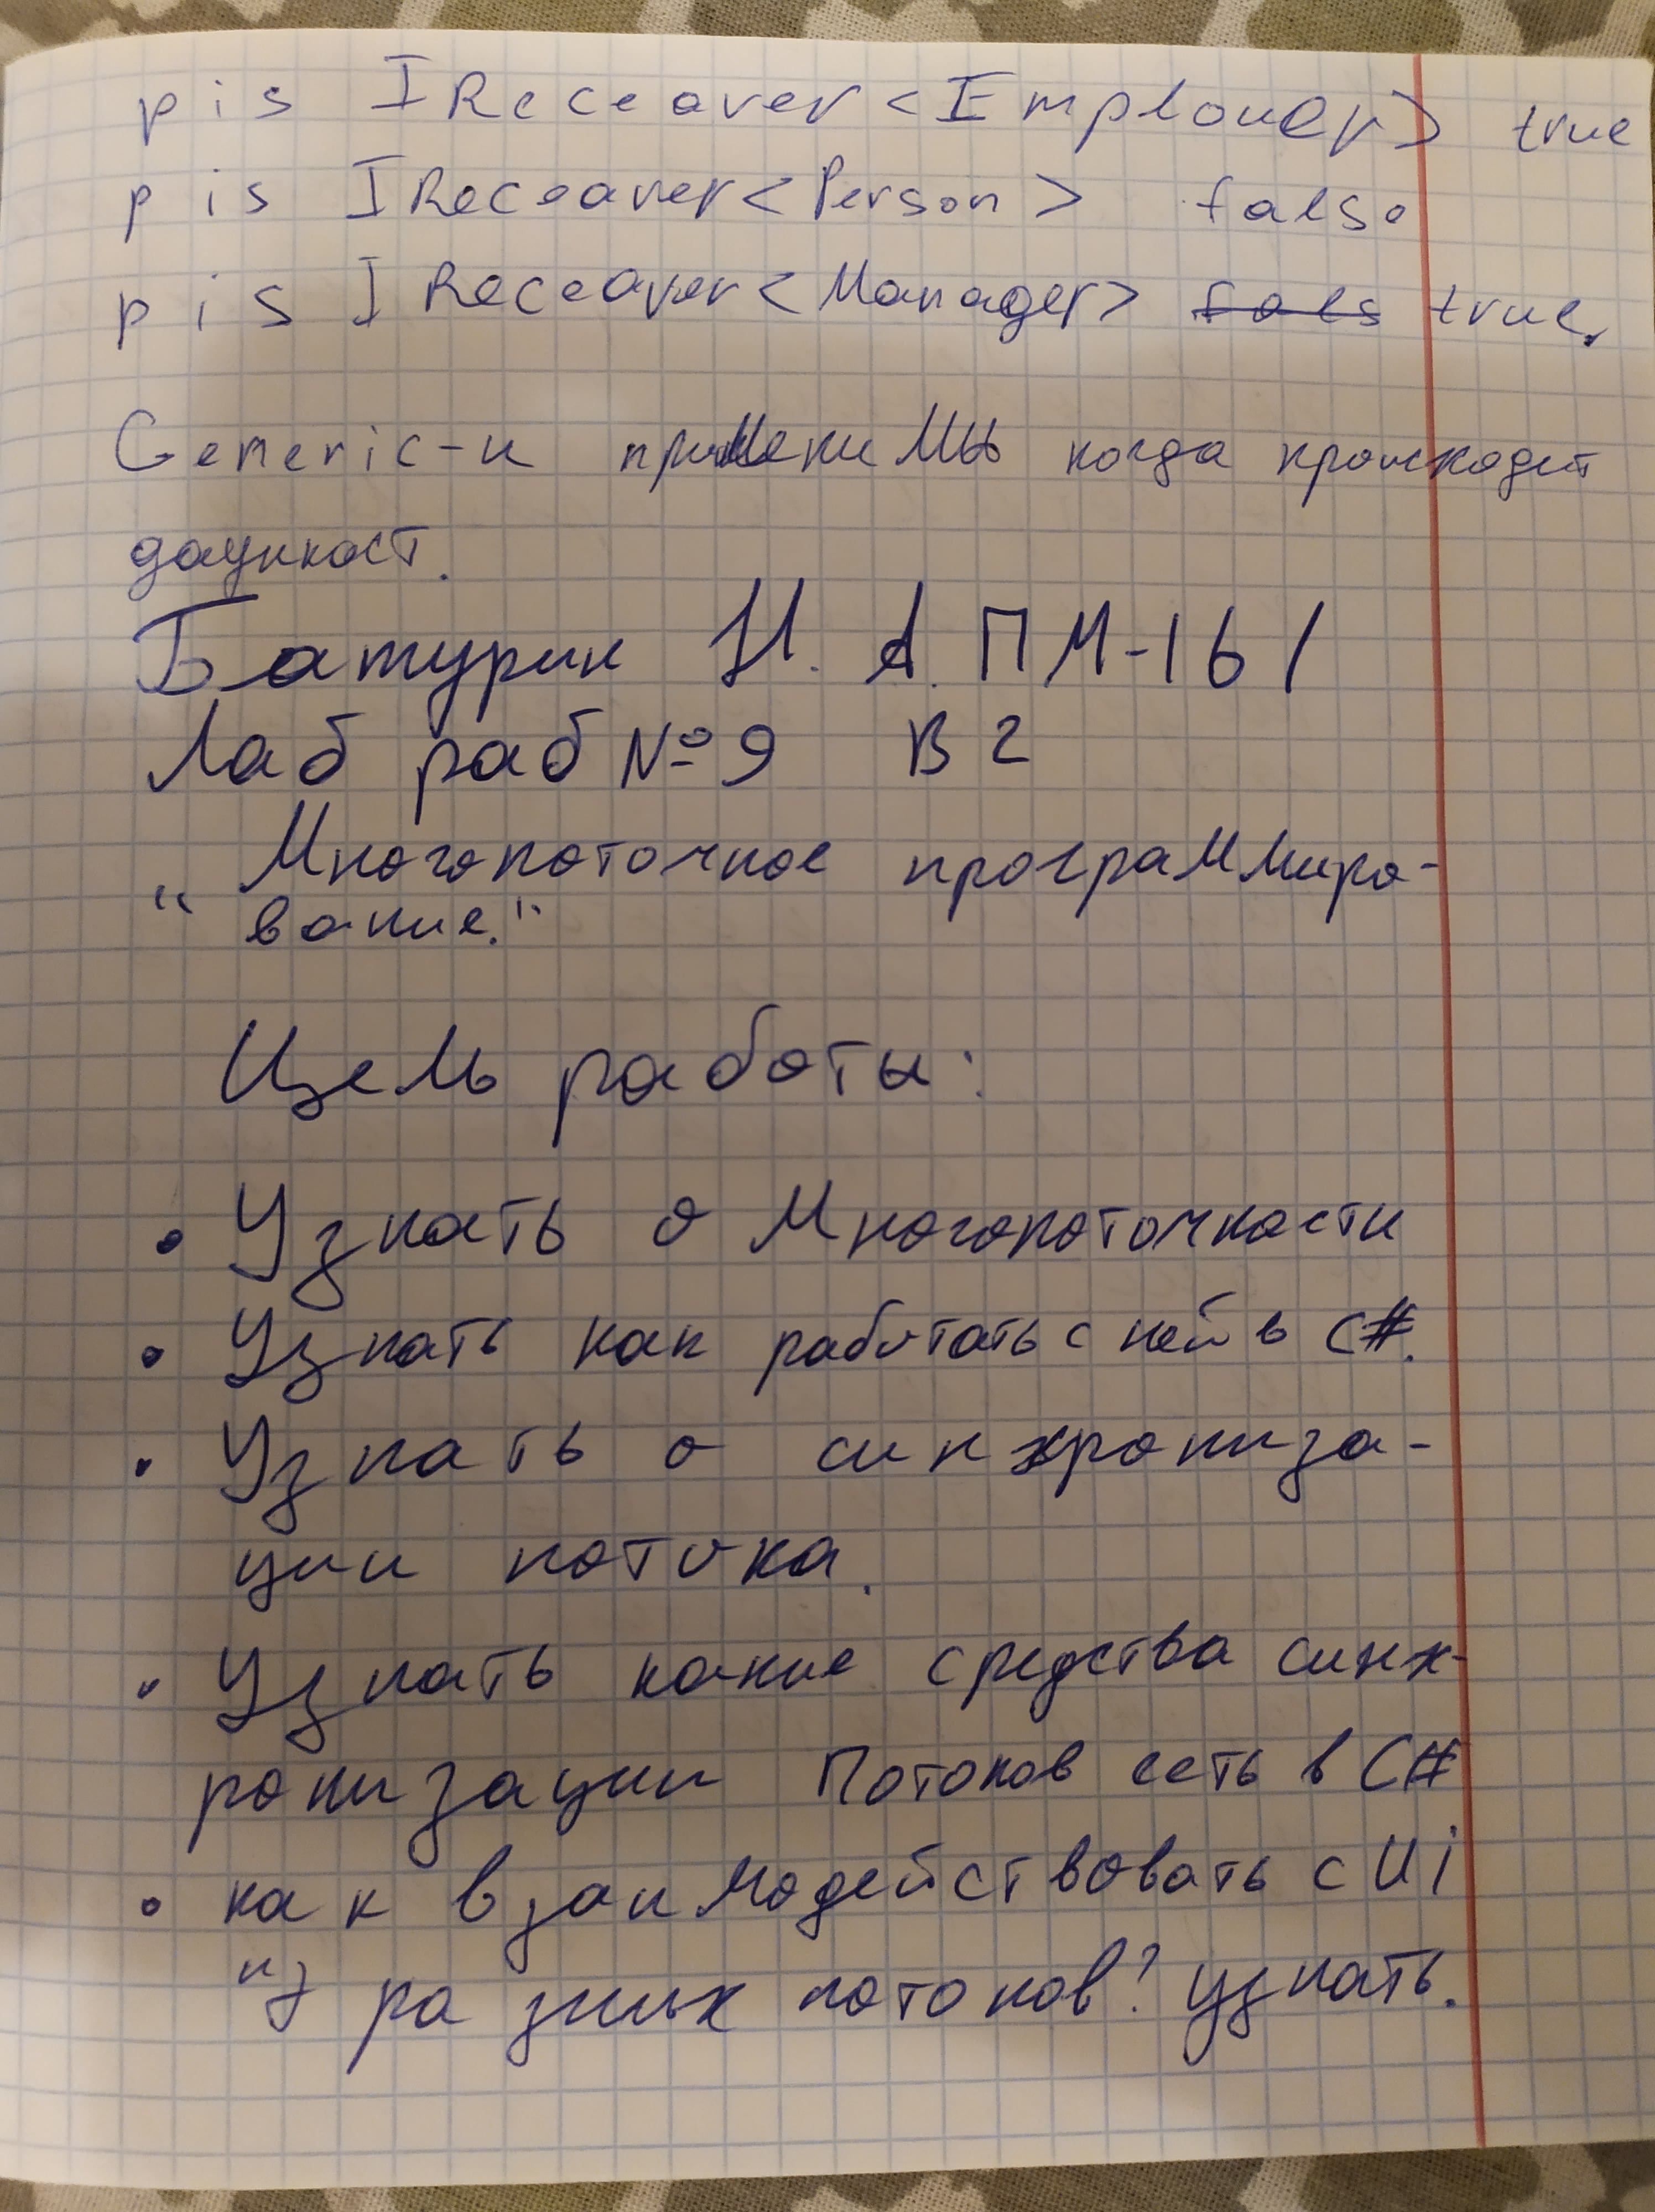 p is IReceaver<Emplouer> true
p is IReceaver<Person> false
p is IReceaver<Manager> fals true.
Generic-и применимы когда происходит
даункаст.
Батурин И. А. ПМ-161
Лаб раб №9 В2
"Многопоточное программиро-
вание."
Цель работы:
• Узнать о Многопоточности
• Узнать как работать с ней в C#.
• Узнать о синхрониза-
ции потока.
• Узнать какие средства синх-
ронизации Потоков есть в C#
• как взаимодействовать с Ui
из разных потоков? узнать.